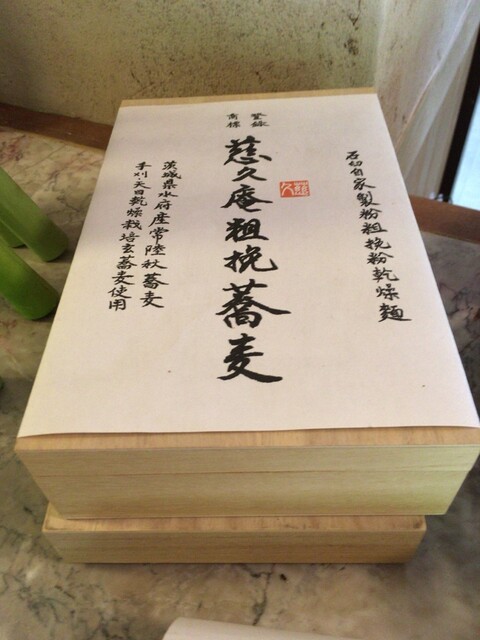 石臼自家製粉粗挽粉乾燥麺
登録
商標
慈久庵粗挽蕎麦
慈久
茨城県水府産常陸秋蕎麦
手刈・天日乾燥栽培玄蕎麦使用